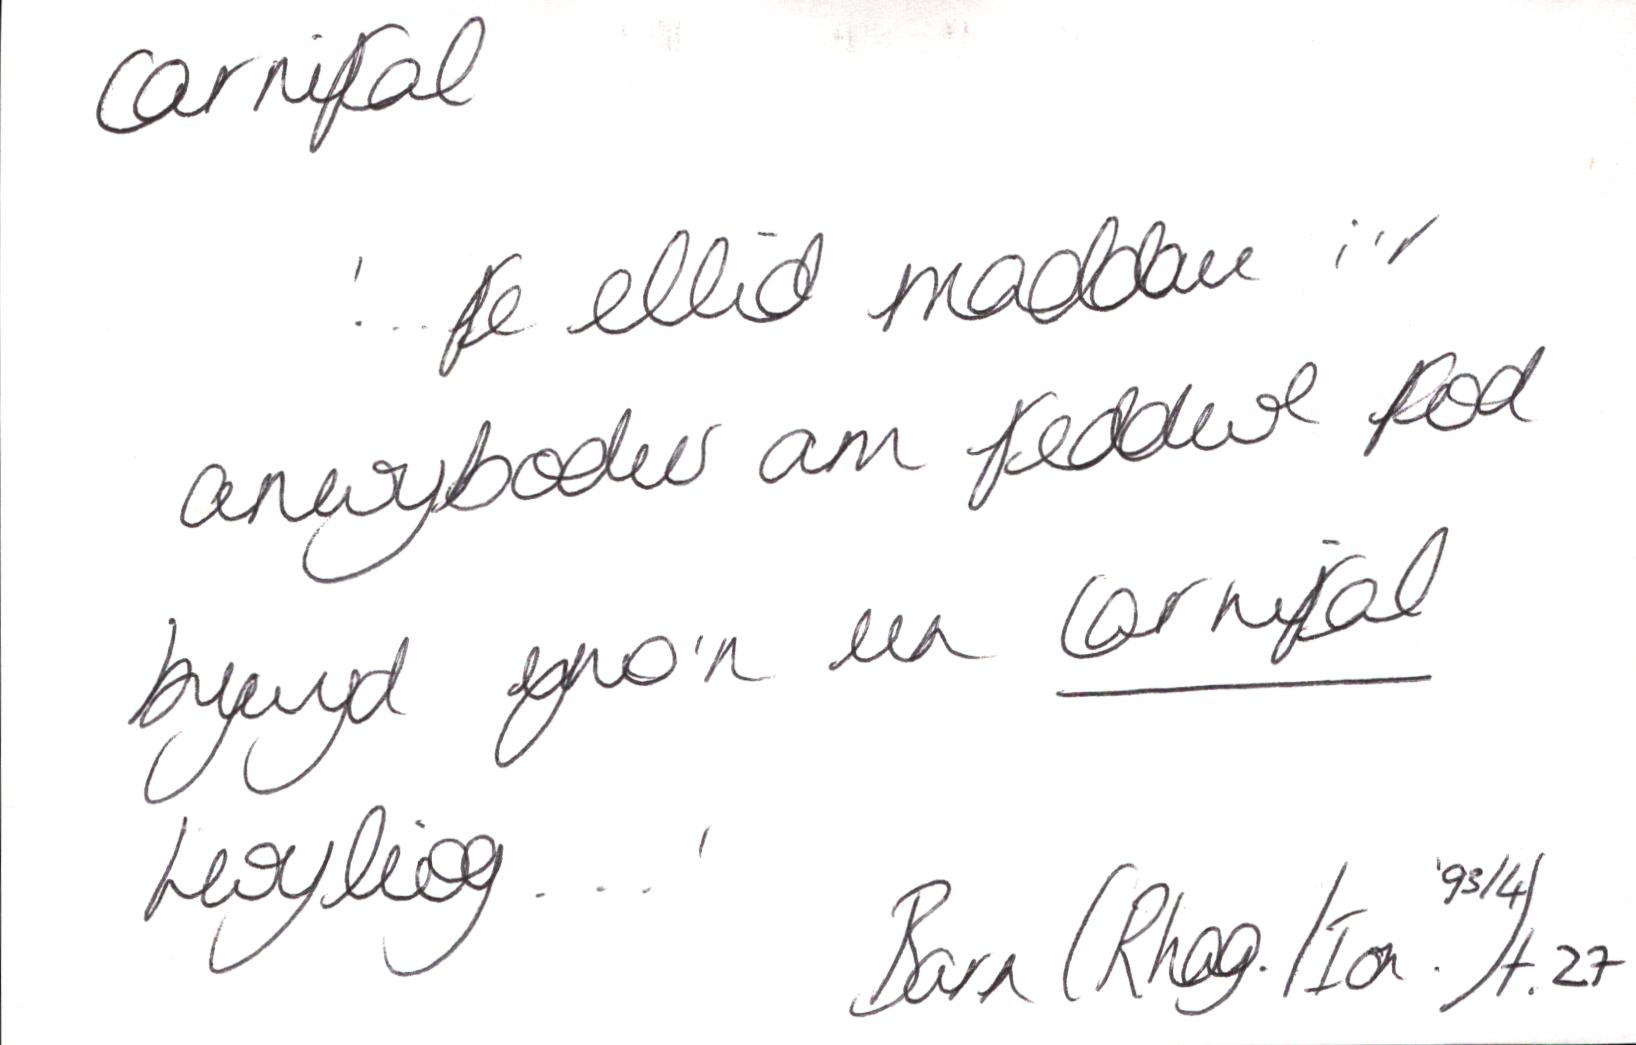 carnifal
'... fe ellid maddau i'r
anwybodus am feddwl fod
bywyd yno'n un carnifal
hwyliog....'
Barn (Rhag./Ion. '93/4)/t.27